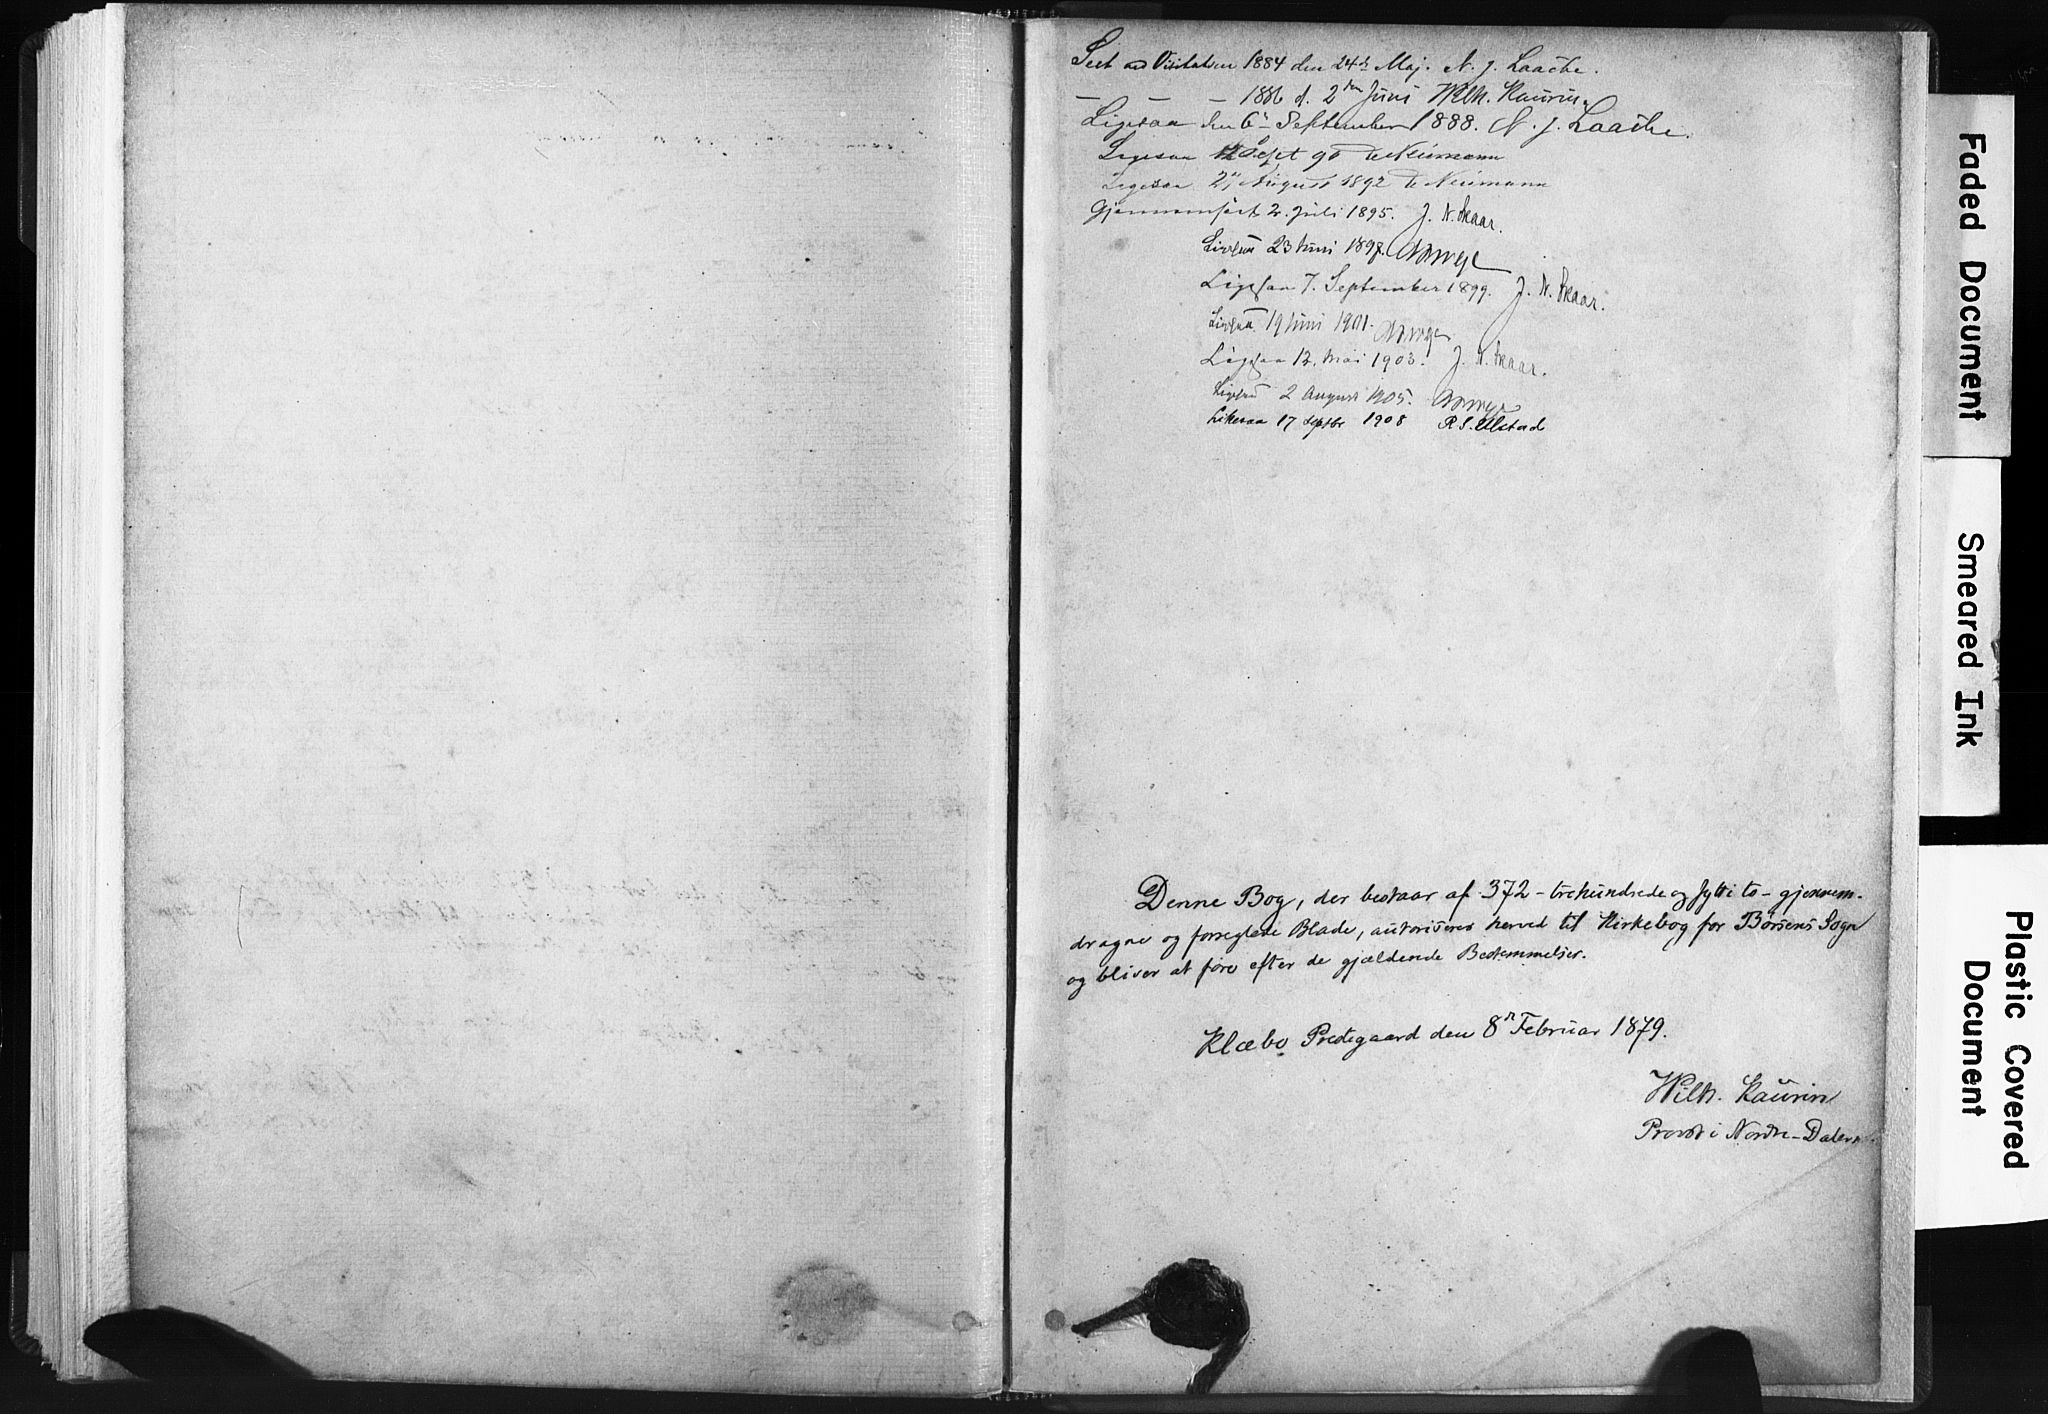 Seet ved Visitatsen 1884 den 24de Maj. N. J. Laache.
— — — 1886 d. 2den Juni Wilh. Kaurin.
Ligesaa den 6te September 1888. N. J. Laache.
Ligesaa Sept 90 Neumann
Ligesaa August 1892 Neumann
Gjennemseet 2. Juli 1895. J. N. Skaar.
Ligesaa 23 Juni 1897.
Ligesaa 7. September 1899. J. N. Skaar.
Ligesaa 19 Juni 1901.
Ligesaa 12. Mai 1903. J. N. Skaar.
Ligesaa 2 August 1905.
Likesaa 17 Septbr 1908 R S. Ulstad
Denne Bog, der bestaar af 372 - trehundrede og sytti to - gjennem-
dragne og forseglede Blade, autoriseres herved til Kirkebog for Børsens Sogn
og bliver at føre efter de gjældende Bestemmelser.
Klæbo Prestegaard den 8de Februar 1879.
Wilh. Kaurin
Provst i Nordre-Dalerne.
Faded Document
Smeared Ink
Plastic Covered
Document